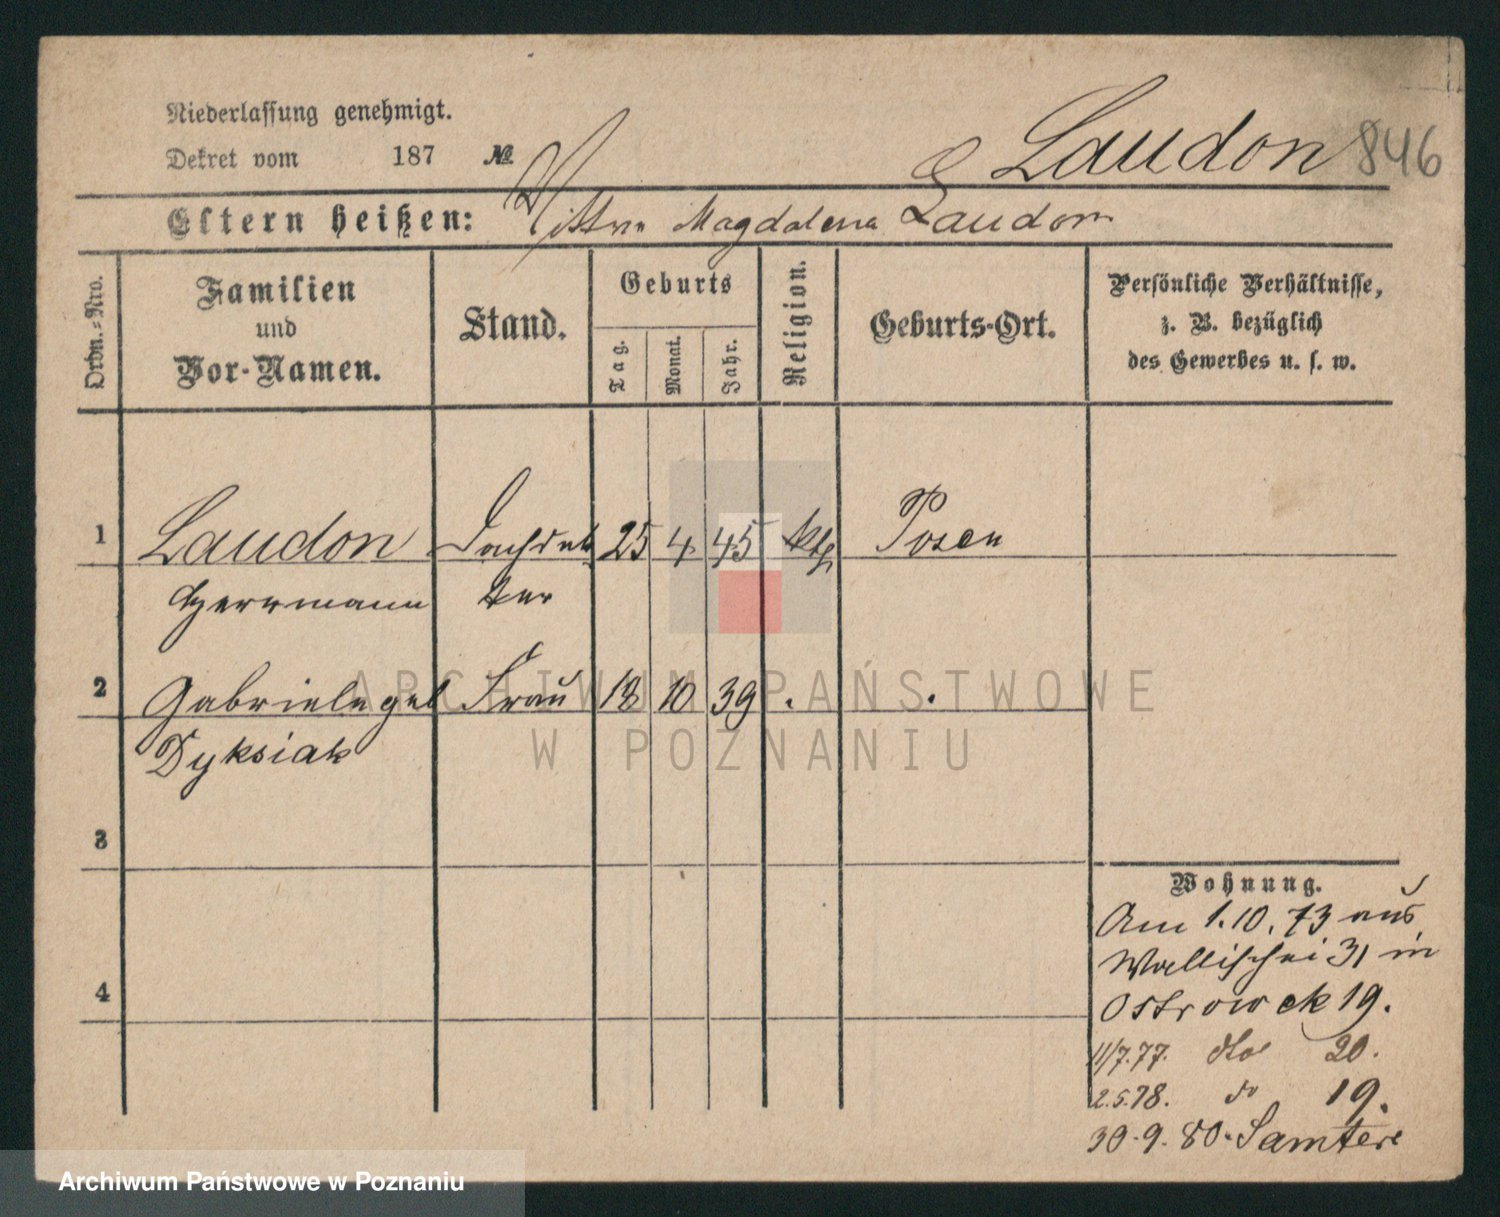 Niederlassung genehmigt.
Dekret vom 187 №
Laudon 846
Eltern heißen: Magdalena Laudon
Ordn.-Nro.
Familien
und
Vor-Namen.
Stand.
Geburts
Tag.
Monat.
Jahr.
Religion.
Geburts-Ort.
Persönliche Verhältnisse,
z. B. bezüglich
des Gewerbes u. s. w.
1 Laudon Dachdek 25 4 45 kth Posen
Herrmann ker
2 Gabriele geb Frau 18 10 39 . .
Dyksiak
3
4
Wohnung.
Am 1.10.73 aus
Wallischei 31 in
Ostrowek 19.
11/7.77. dto 20.
2.5.78. do 19.
30.9.80. Samter
ARCHIWUM PAŃSTWOWE
W POZNANIU
Archiwum Państwowe w Poznaniu